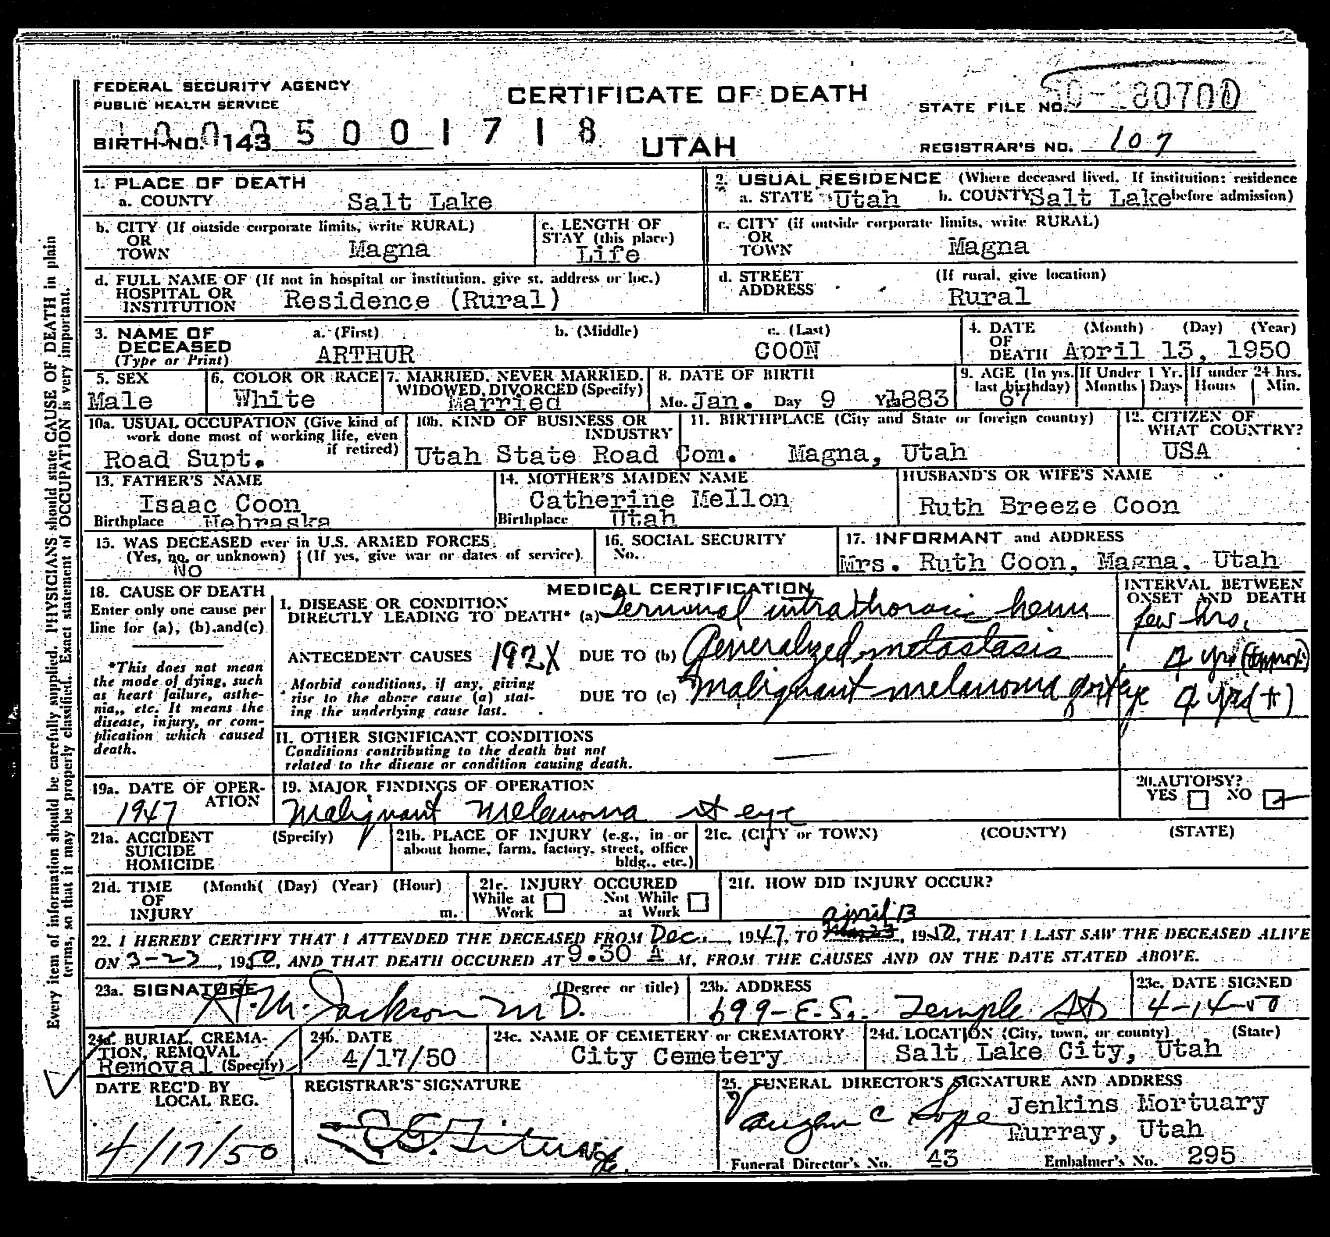 FEDERAL SECURITY AGENCY
PUBLIC HEALTH SERVICE
CERTIFICATE OF DEATH
STATE FILE NO.
BIRTH NO. 143 5 0 0 1 7 1 8
UTAH
REGISTRAR'S NO. 107
1. PLACE OF DEATH
a. COUNTY Salt Lake
2. USUAL RESIDENCE (Where deceased lived. If institution: residence before admission)
a. STATE Utah b. COUNTY Salt Lake
b. CITY (If outside corporate limits, write RURAL)
OR
TOWN Magna
c. LENGTH OF
STAY (this place)
Life
c. CITY (if outside corporate limits, write RURAL)
OR
TOWN Magna
d. FULL NAME OF (If not in hospital or institution, give st. address or loc.)
HOSPITAL OR
INSTITUTION Residence (Rural)
d. STREET (If rural, give location)
ADDRESS Rural
3. NAME OF a. (First) b. (Middle) c. (Last)
DECEASED
(Type or Print) ARTHUR COON
4. DATE (Month) (Day) (Year)
OF
DEATH April 13, 1950
5. SEX
Male
6. COLOR OR RACE
White
7. MARRIED, NEVER MARRIED,
WIDOWED, DIVORCED (Specify)
Married
8. DATE OF BIRTH
Mo. Jan. Day 9 Yr. 1883
9. AGE (In yrs. last birthday) If Under 1 Yr. If under 24 hrs.
67 Months Days Hours Min.
10a. USUAL OCCUPATION (Give kind of
work done most of working life, even
if retired)
Road Supt.
10b. KIND OF BUSINESS OR
INDUSTRY
Utah State Road Com.
11. BIRTHPLACE (City and State or foreign country)
Magna, Utah
12. CITIZEN OF
WHAT COUNTRY?
USA
13. FATHER'S NAME
Isaac Coon
Birthplace Nebraska
14. MOTHER'S MAIDEN NAME
Catherine Mellon
Birthplace Utah
HUSBAND'S OR WIFE'S NAME
Ruth Breeze Coon
15. WAS DECEASED ever in U.S. ARMED FORCES
(Yes, no, or unknown) (If yes, give war or dates of service)
No
16. SOCIAL SECURITY
No.
17. INFORMANT and ADDRESS
Mrs. Ruth Coon, Magna, Utah
18. CAUSE OF DEATH
Enter only one cause per
line for (a), (b), and (c)
*This does not mean
the mode of dying, such
as heart failure, asthe-
nia, etc. It means the
disease, injury, or com-
plication which caused
death.
MEDICAL CERTIFICATION
INTERVAL BETWEEN
ONSET AND DEATH
I. DISEASE OR CONDITION
DIRECTLY LEADING TO DEATH* (a) Terminal intrathoracic hem few hrs.
ANTECEDENT CAUSES 192X DUE TO (b) Generalized metastasis 2 yrs (approx)
Morbid conditions, if any, giving
rise to the above cause (a) stat-
ing the underlying cause last.
DUE TO (c) Malignant melanoma of rt eye 2 yrs (+)
II. OTHER SIGNIFICANT CONDITIONS
Conditions contributing to the death but not
related to the disease or condition causing death.
19a. DATE OF OPER-
ATION
1947
19. MAJOR FINDINGS OF OPERATION
Malignant Melanoma rt eye
20. AUTOPSY?
YES NO
21a. ACCIDENT (Specify)
SUICIDE
HOMICIDE
21b. PLACE OF INJURY (e.g., in or
about home, farm, factory, street, office
bldg., etc.)
21c. (CITY or TOWN) (COUNTY) (STATE)
21d. TIME (Month) (Day) (Year) (Hour)
OF
INJURY m.
21e. INJURY OCCURED
While at Work Not While at Work
21f. HOW DID INJURY OCCUR?
April 13
22. I HEREBY CERTIFY THAT I ATTENDED THE DECEASED FROM Dec., 1947, TO Mar 23, 1950, THAT I LAST SAW THE DECEASED ALIVE
ON 3-23, 1950, AND THAT DEATH OCCURED AT 9.30 A M. FROM THE CAUSES AND ON THE DATE STATED ABOVE.
23a. SIGNATURE (Degree or title)
H.M. Jackson M D.
23b. ADDRESS
699-E. So. Temple St
23c. DATE SIGNED
4-14-50
24a. BURIAL, CREMA-
TION, REMOVAL
Removal (Specify)
24b. DATE
4/17/50
24c. NAME OF CEMETERY or CREMATORY
City Cemetery
24d. LOCATION (City, town, or county) (State)
Salt Lake City, Utah
DATE REC'D BY
LOCAL REG.
4/17/50
REGISTRAR'S SIGNATURE
25. FUNERAL DIRECTOR'S SIGNATURE AND ADDRESS
Vaughn C
Jenkins Mortuary
Murray, Utah
Funeral Director's No. 43 Embalmer's No. 295
Every item of information should be carefully supplied. PHYSICIANS should state CAUSE OF DEATH in plain
terms, so that it may be properly classified. Exact statement of OCCUPATION is very important.